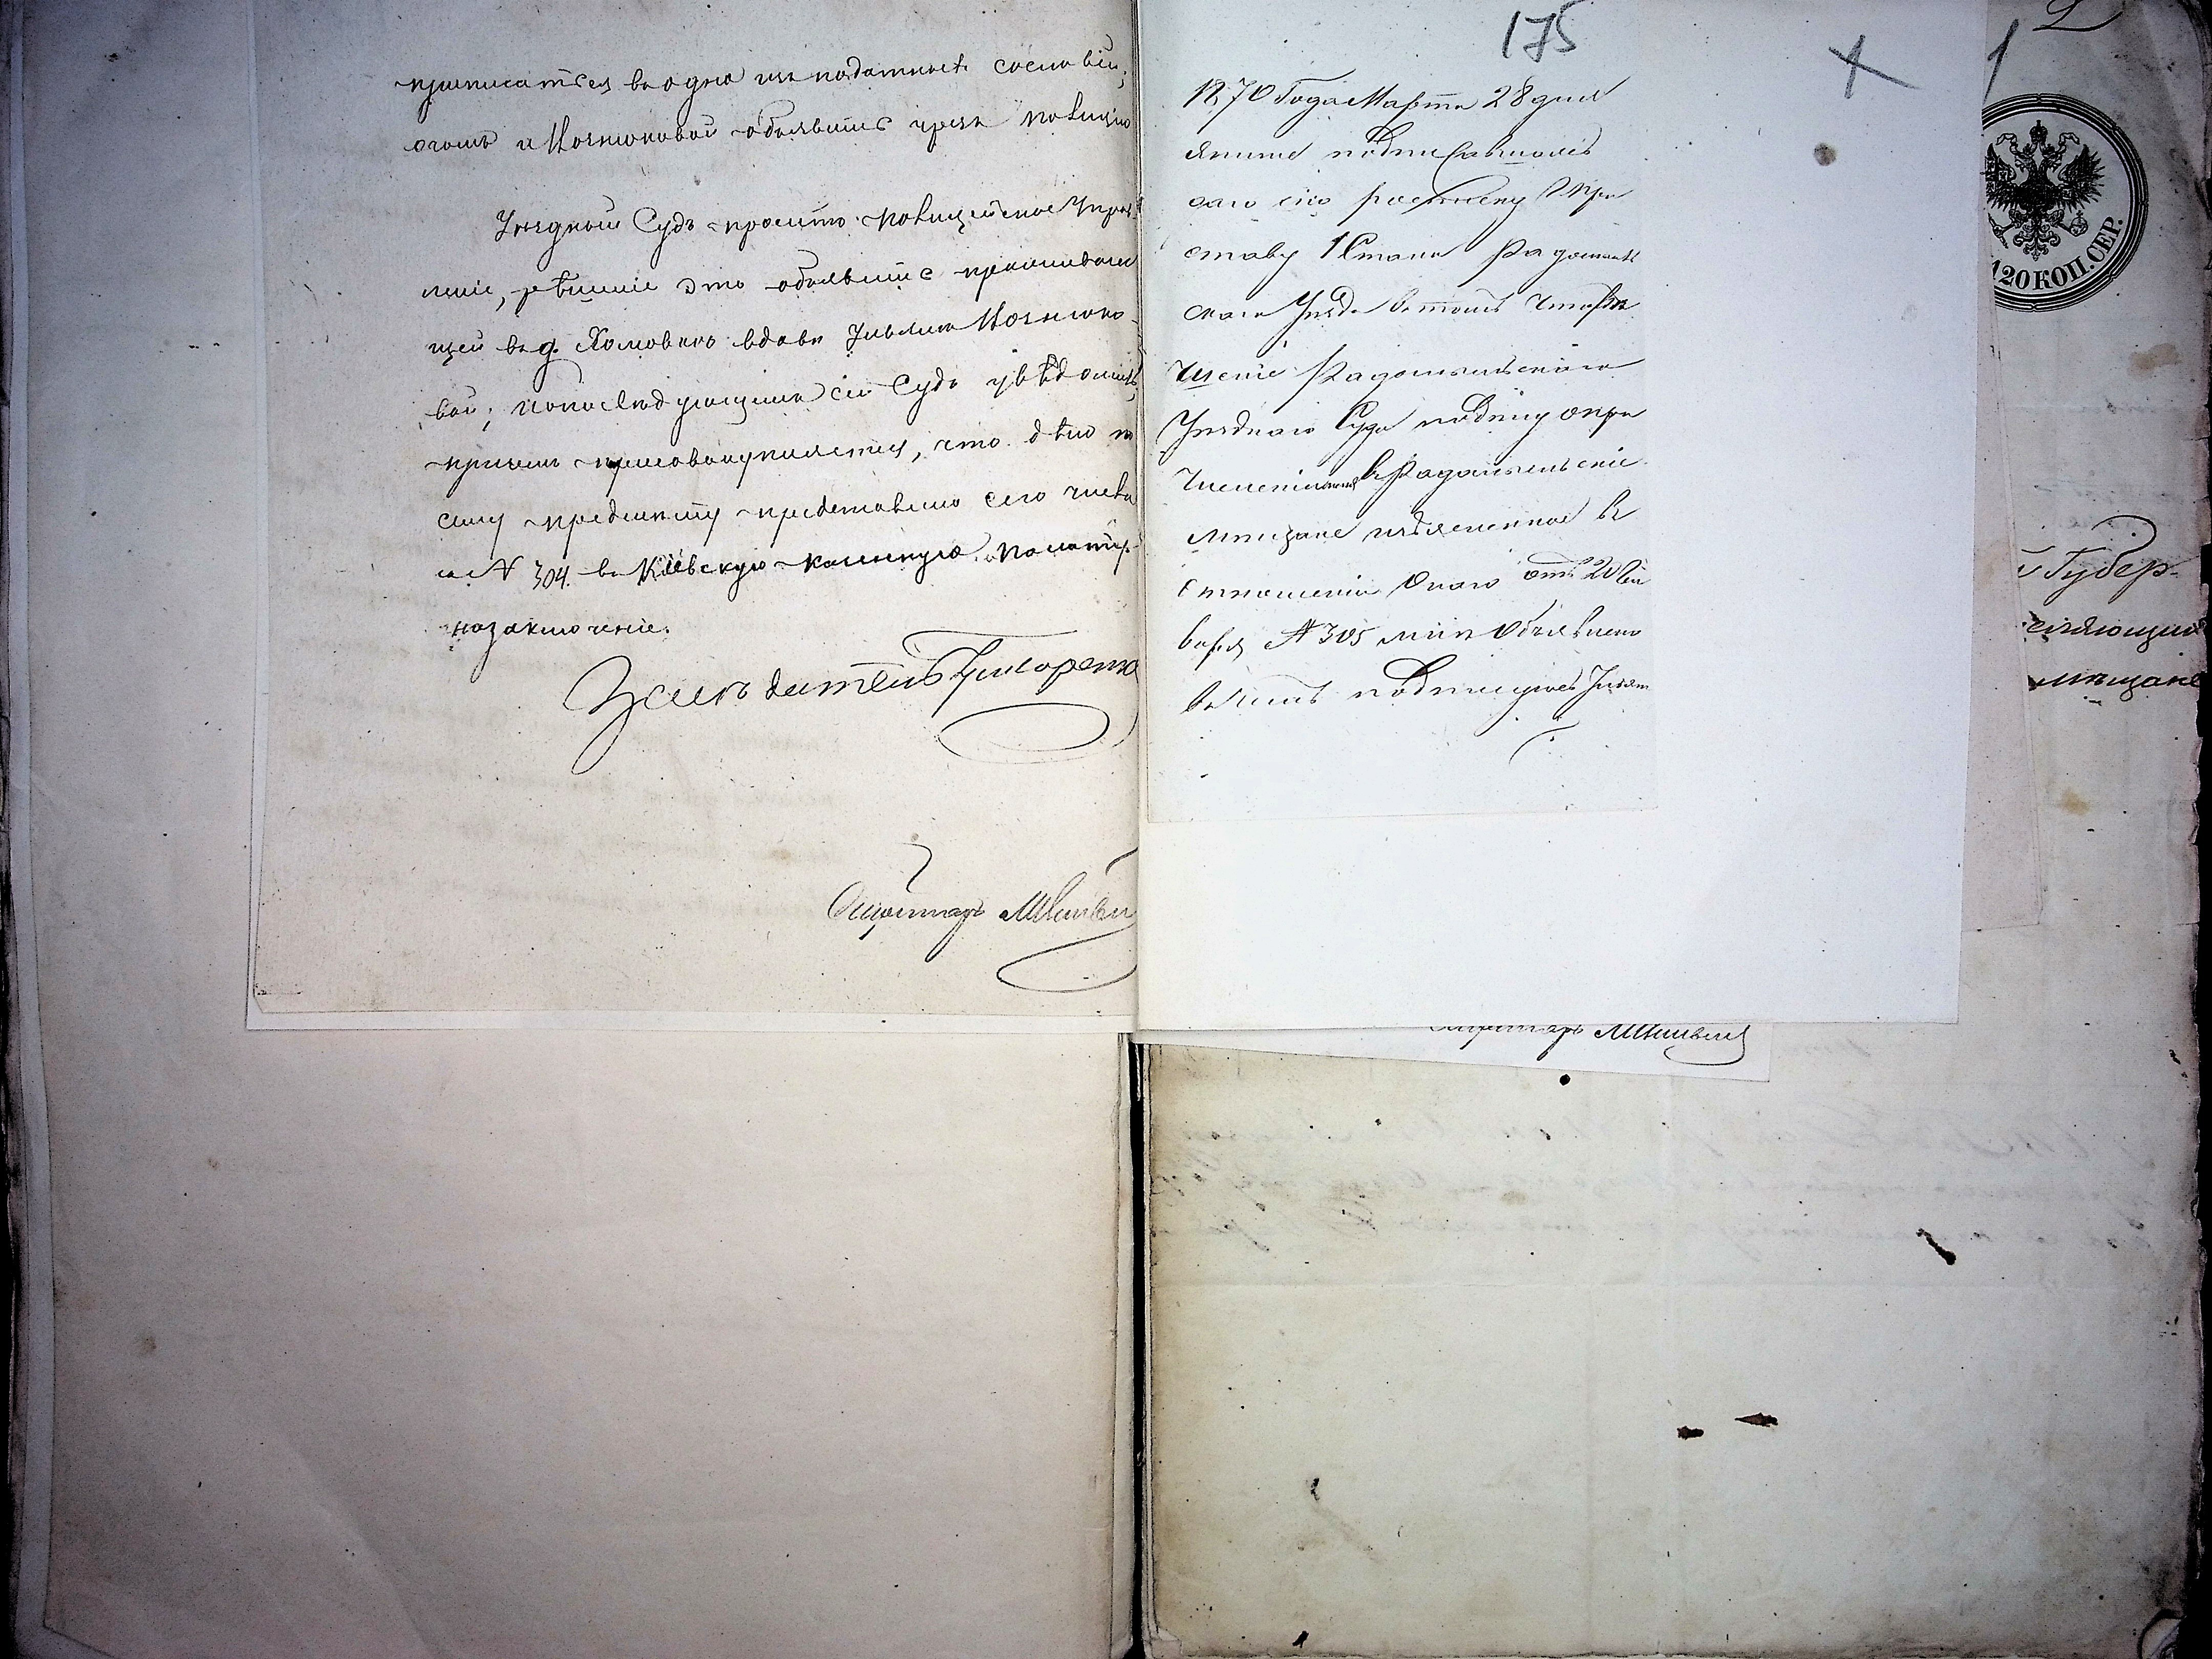 приписаться въ одно изъ податныхъ сословій;
о чемъ и объявить чрезъ полицію
Уѣздный Судъ проситъ Полицейское Управ-
леніе, рѣшеніе это объявить проживаю
щей въ д. вдове
вой; и о послѣдующемъ сей Судъ увѣдомить,
причемъ присовокупляется, что дѣло по
сему предмету представлено сего числа
за № 304. въ Кіевскую казенную палату
на заключеніе.
Засѣдатель
Секретарь
175
1870 Года Марта 28 дня
я ниже подписавшаяся
даю сію росписку При
ставу 1 Стана Радомысль
скаго Уѣзда въ томъ что рѣ
шеніе Радомысльскаго
Уѣзднаго Суда по делу о при
численіи меня въ Радомысльскіе
мещане изъясненное въ
отношеніи Онаго отъ 20 Ян
варя № 305 мнѣ Объявлено
въ чемъ подписуюсь
1
2
120 КОП. СЕР.
й Губер-
мѣщане
Секретарь